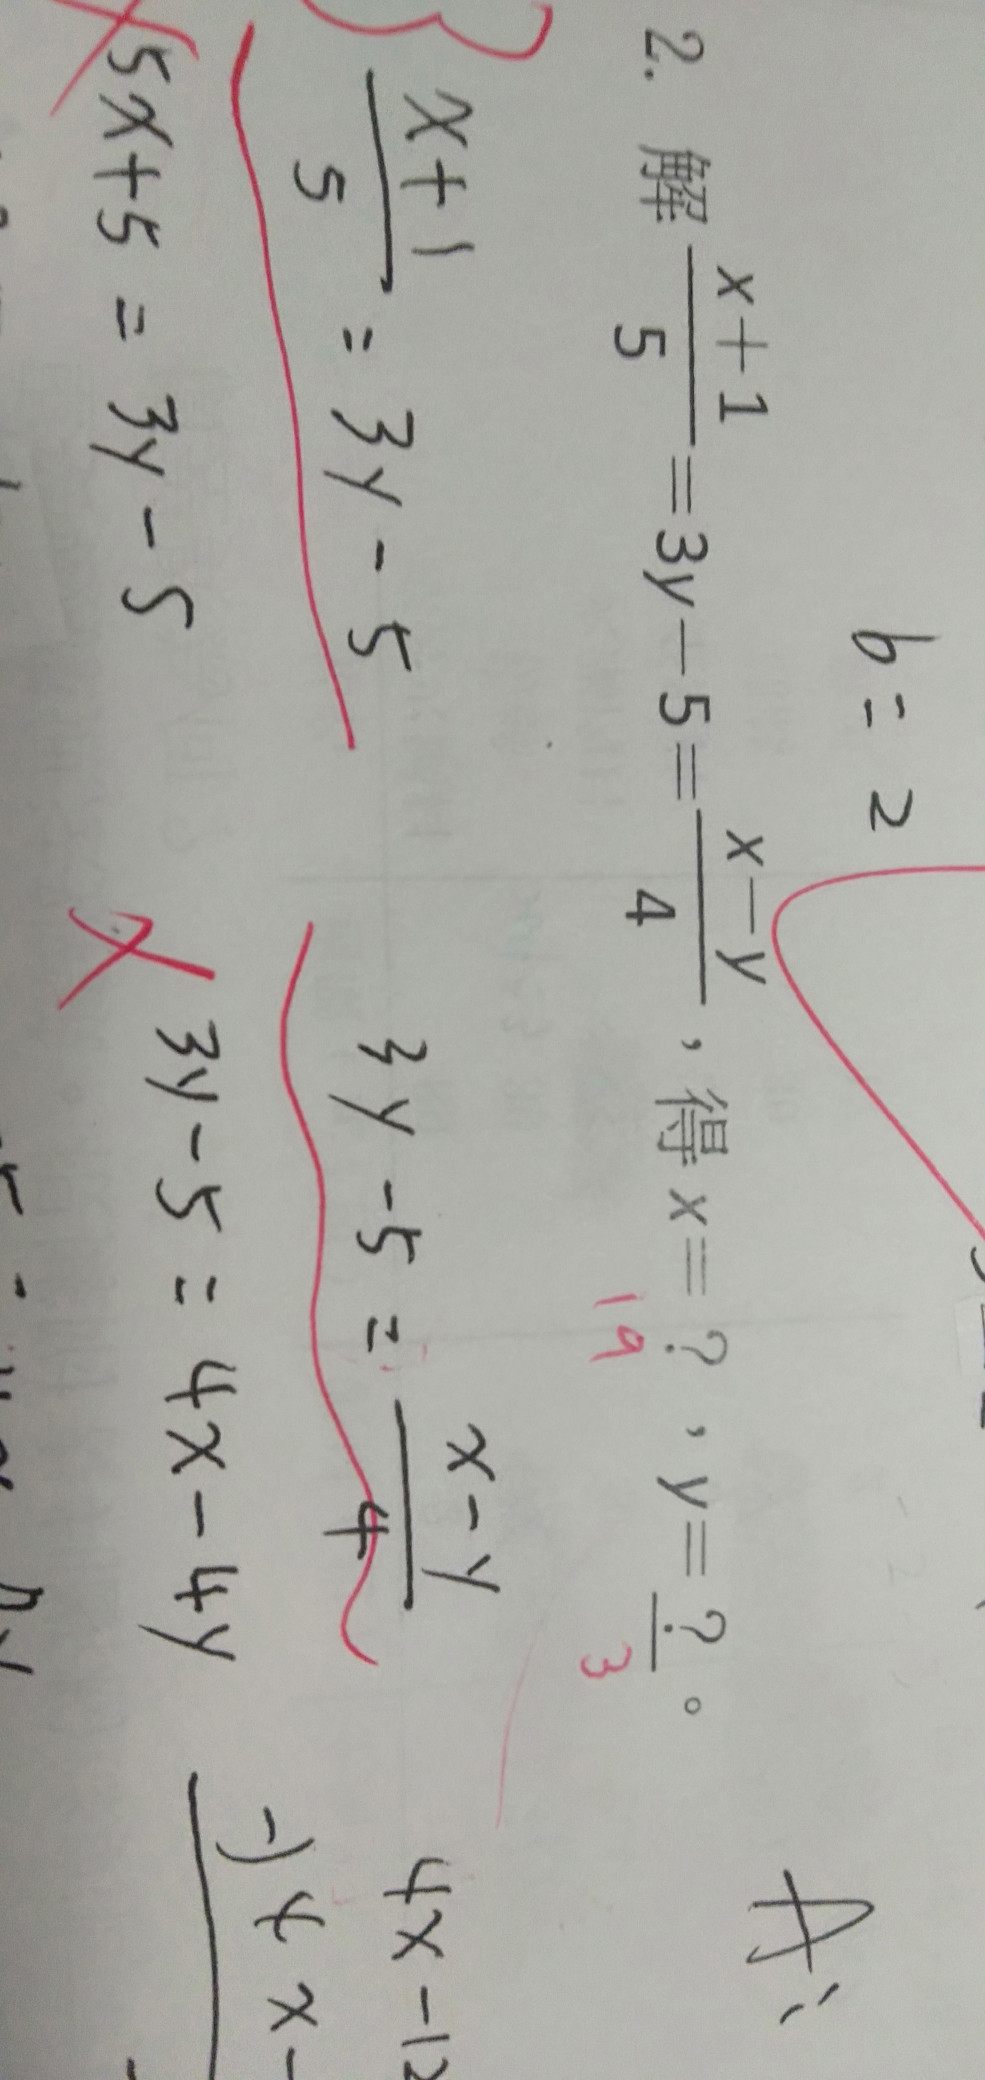 b=2
2. 解 \frac{x+1}{5}=3y-5=\frac{x-y}{4},得x=?,y=?。
19 3
A:
\frac{x+1}{5}=3y-5
3y-5=\frac{x-y}{4}
4x-12
5x+5=3y-5
3y-5=4x-4y
-)4x-